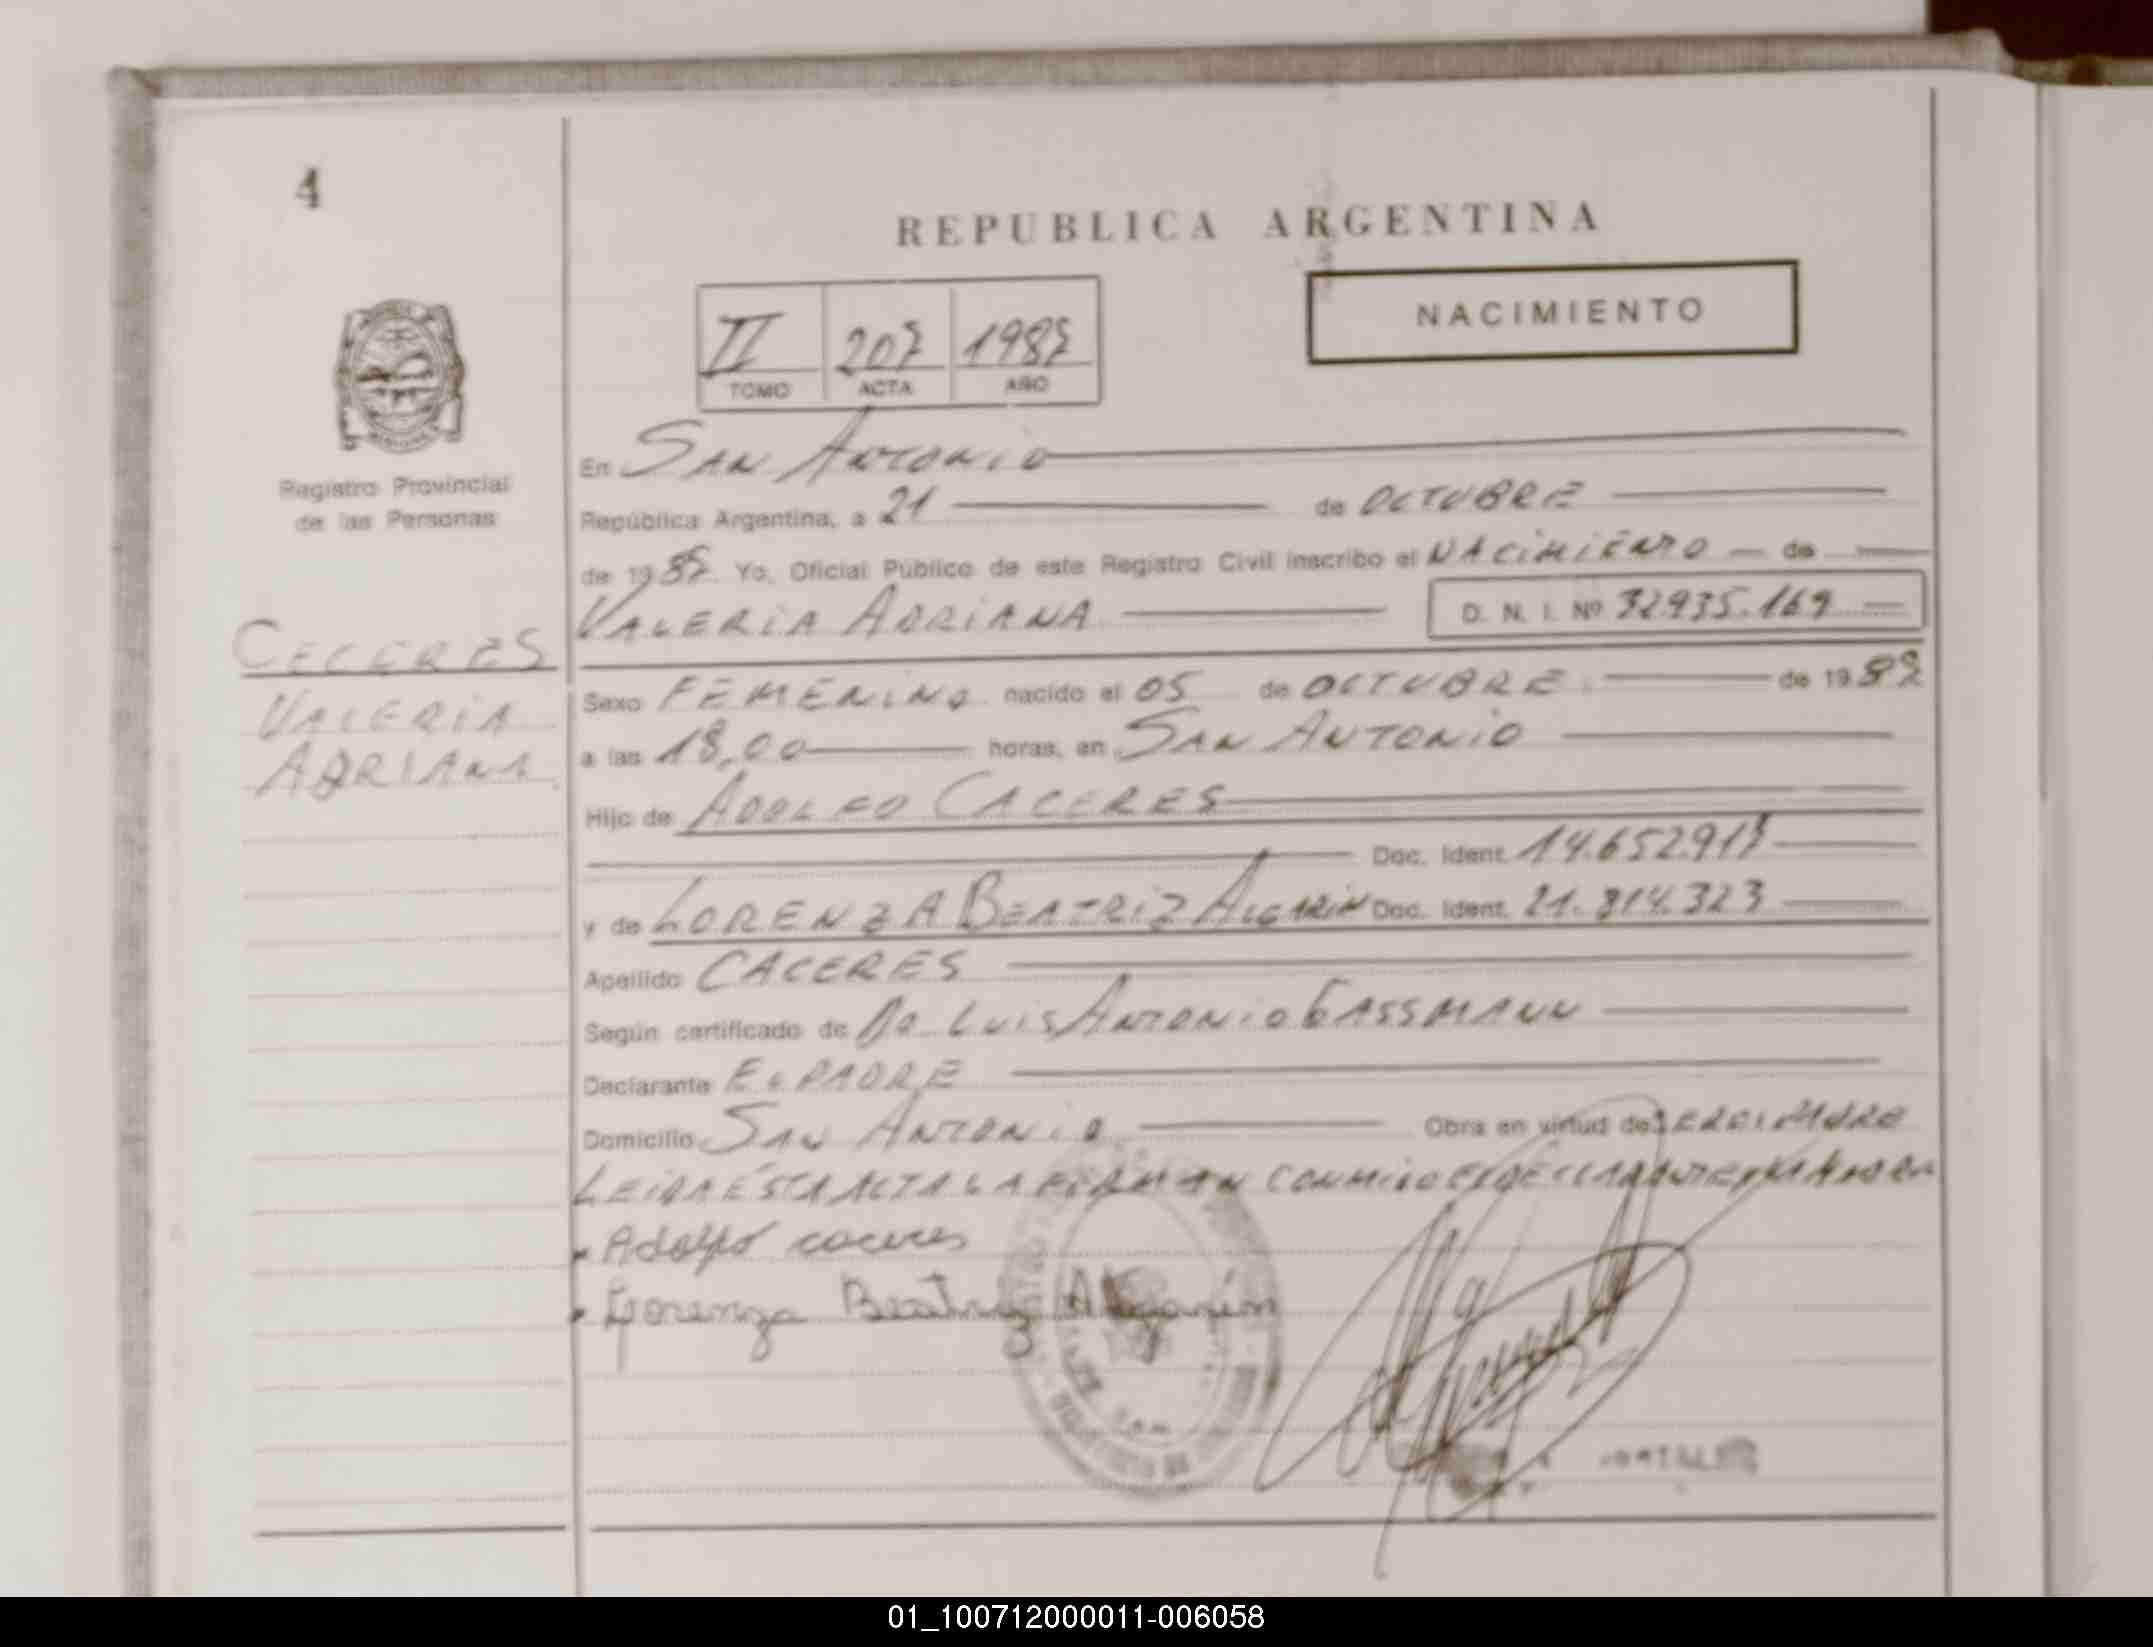 4
REPUBLICA ARGENTINA
NACIMIENTO
II 207 1987
TOMO ACTA AÑO
Registro Provincial
de las Personas
CECERES
VALERIA
ADRIANA
En SAN ANTONIO
República Argentina, a 21 de OCTUBRE
de 1987 Yo, Oficial Público de este Registro Civil inscribo el NACIMIENTO de
VALERIA ADRIANA D. N. I. Nº 32.935.169
Sexo FEMENINO nacido el 05 de OCTUBRE de 1987
a las 18,00 horas, en SAN ANTONIO
Hijo de ADOLFO CACERES
Doc. Ident.
y de LORENZA BEATRIZ ALGARIN Doc. Ident. 21.814.323
Apellido CACERES
Según certificado de Dr. LUIS ANTONIO GASSMANN
Declarante EL PADRE
Domicilio SAN ANTONIO Obra en virtud de SER EL PADRE
LEIDA ESTA ACTA LA FIRMAN CONMIGO EL DECLARANTE Y LA MADRE
Adolfo caceres
Lorenza Beatriz Algarin
01_100712000011-006058